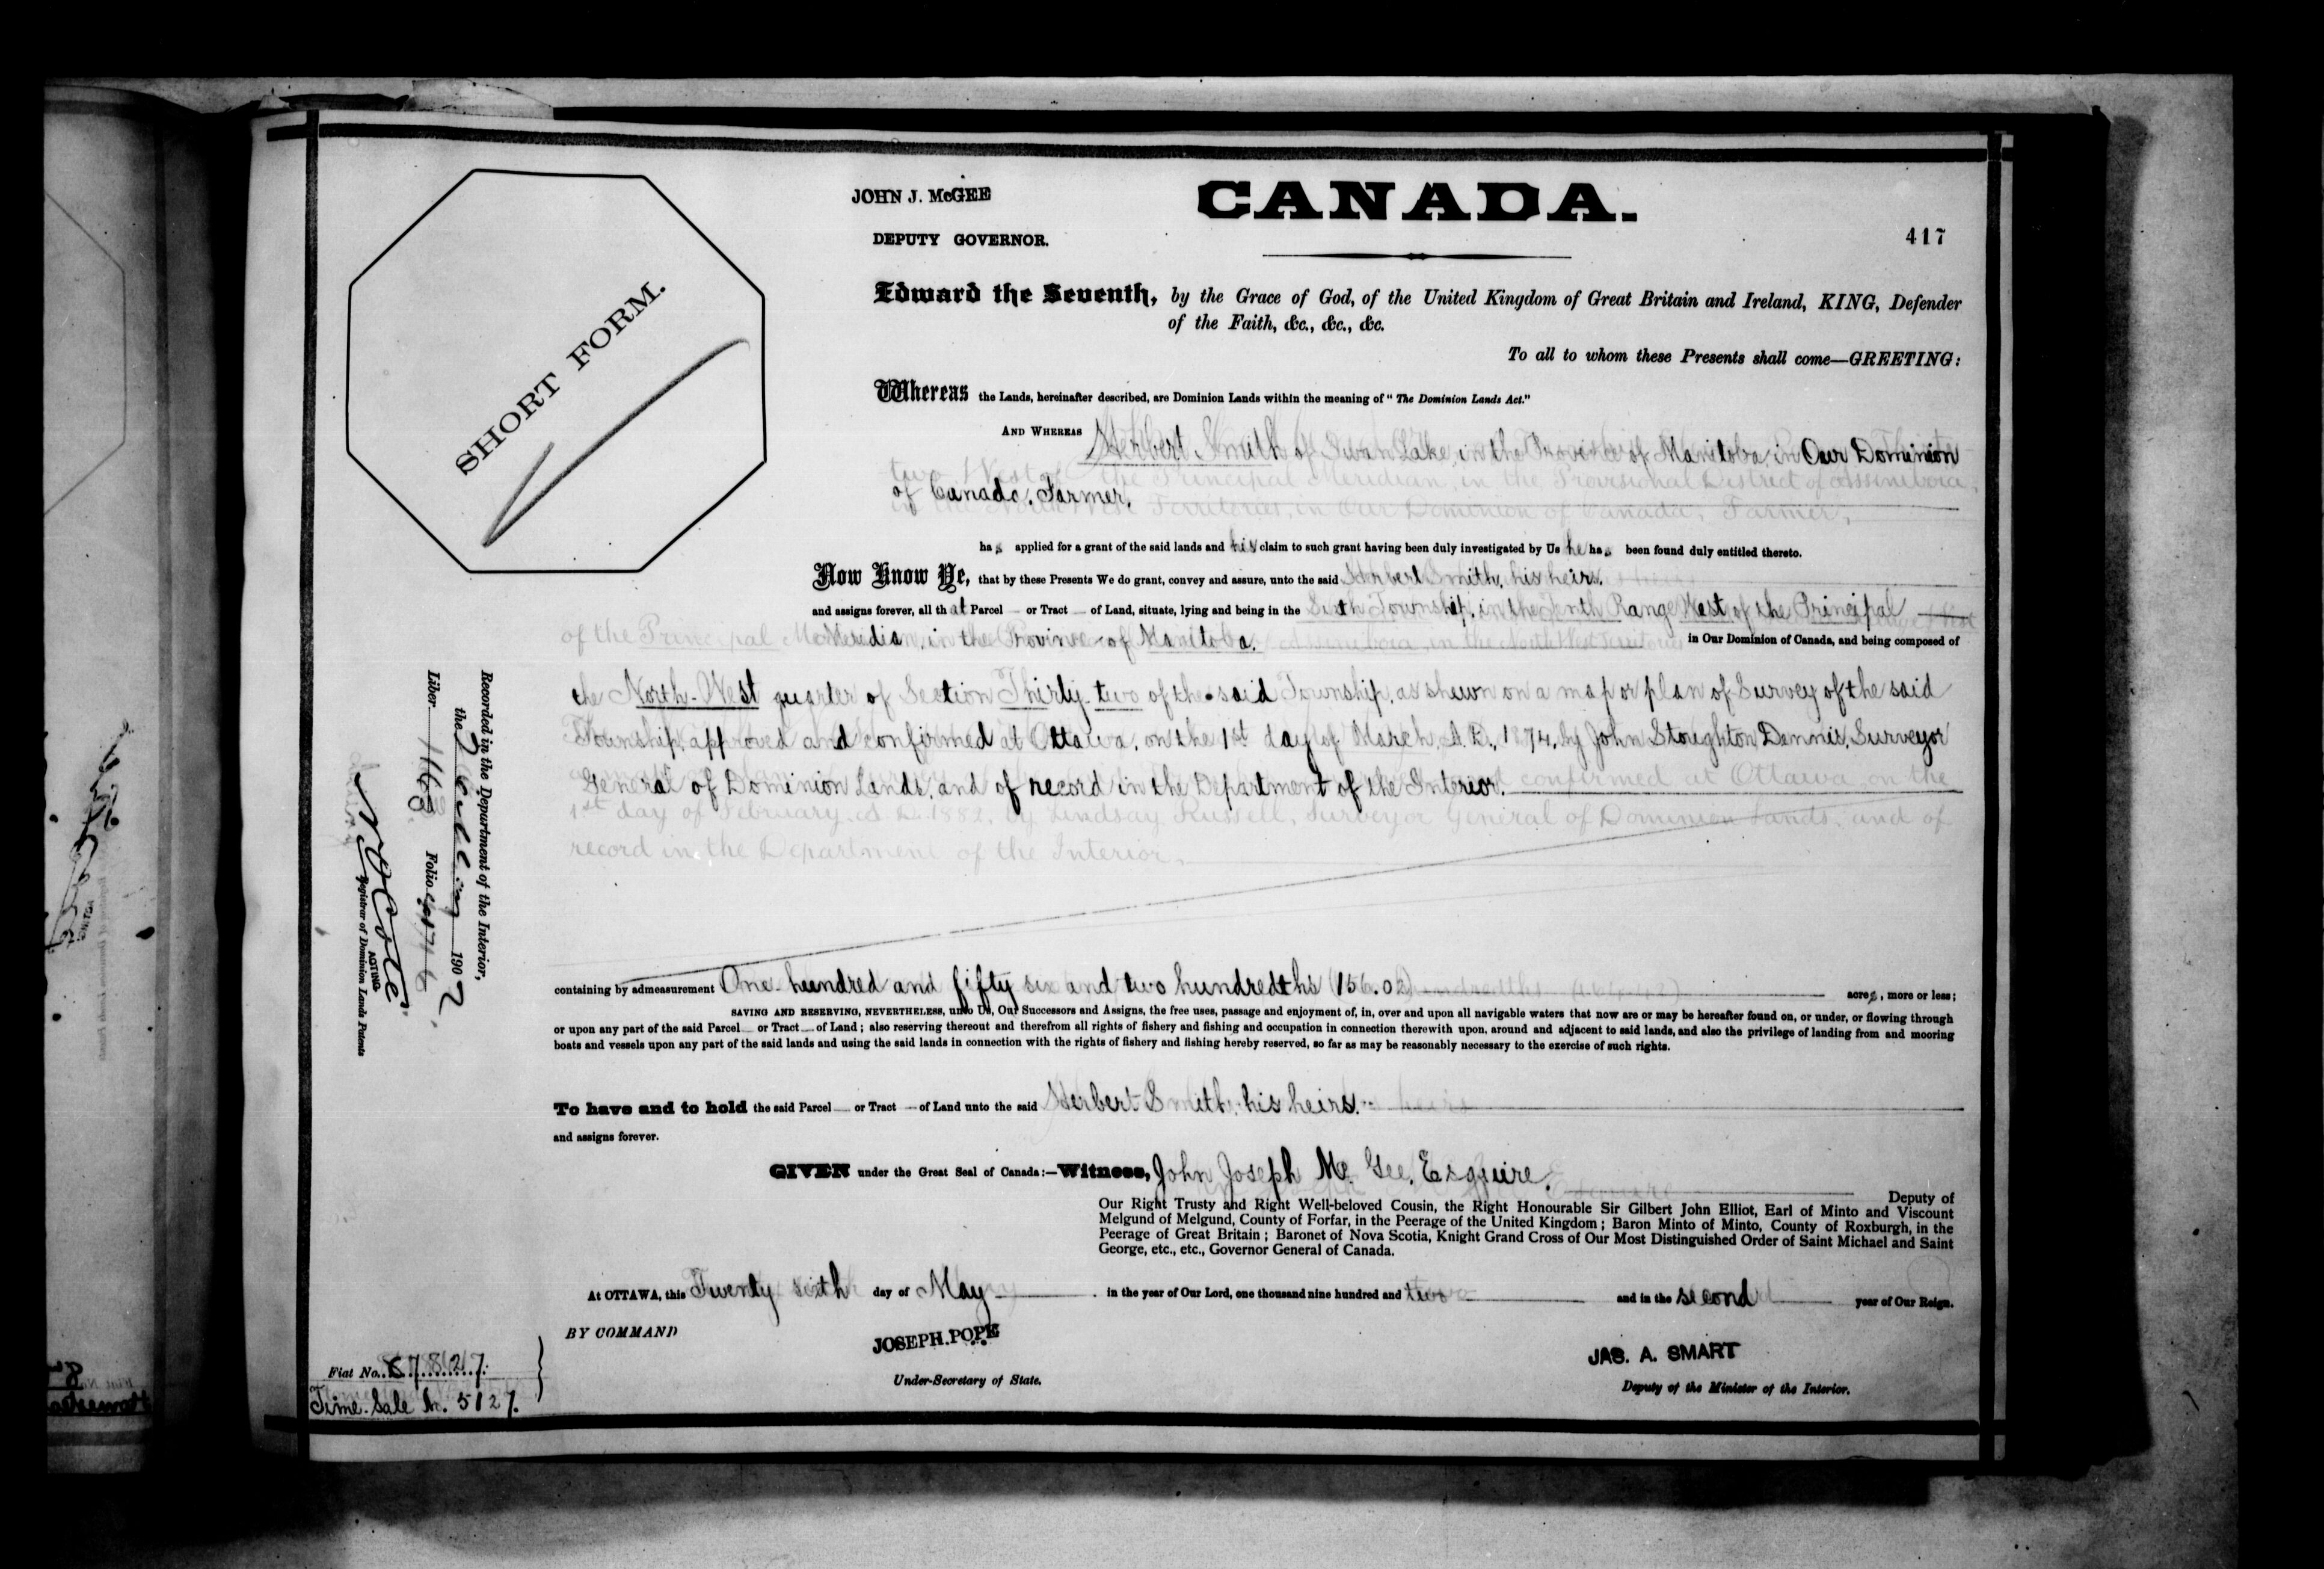 JOHN J. McGEE
DEPUTY GOVERNOR.
CANADA.
417
SHORT FORM.
Edward the Seventh, by the Grace of God, of the United Kingdom of Great Britain and Ireland, KING, Defender
of the Faith, &c., &c., &c.
To all to whom these Presents shall come—GREETING:
Whereas the Lands, hereinafter described, are Dominion Lands within the meaning of "The Dominion Lands Act."
AND WHEREAS Herbert Smith of Swan Lake, in the Province of Manitoba, in Our Dominion
of Canada, Farmer,
has applied for a grant of the said lands and his claim to such grant having been duly investigated by Us he has been found duly entitled thereto.
Now Know Ye, that by these Presents We do grant, convey and assure, unto the said Herbert Smith, his heirs
and assigns forever, all that Parcel or Tract of Land, situate, lying and being in the Sixth Township, in the Tenth Range West of the Principal
Meridian, in the Province of Manitoba, in Our Dominion of Canada, and being composed of
the North-West quarter of Section Thirty-two of the said Township, as shewn on a map or plan of Survey of the said
Township, approved and confirmed at Ottawa, on the 1st day of March, A.D., 1874, by John Stoughton Dennis, Surveyor
General of Dominion Lands, and of record in the Department of the Interior.
confirmed at Ottawa, on the
1st day of February, A.D. 1882, by Lindsay Russell, Surveyor General of Dominion Lands, and of
record in the Department of the Interior,
containing by admeasurement One hundred and fifty six and two hundredths (156.02) acres, more or less;
SAVING AND RESERVING, NEVERTHELESS, unto Us, Our Successors and Assigns, the free uses, passage and enjoyment of, in, over and upon all navigable waters that now are or may be hereafter found on, or under, or flowing through
or upon any part of the said Parcel or Tract of Land; also reserving thereout and therefrom all rights of fishery and fishing and occupation in connection therewith upon, around and adjacent to said lands, and also the privilege of landing from and mooring
boats and vessels upon any part of the said lands and using the said lands in connection with the rights of fishery and fishing hereby reserved, so far as may be reasonably necessary to the exercise of such rights.
To have and to hold the said Parcel or Tract of Land unto the said Herbert Smith, his heirs
and assigns forever.
GIVEN under the Great Seal of Canada:—Witness, John Joseph McGee, Esquire,
Deputy of
Our Right Trusty and Right Well-beloved Cousin, the Right Honourable Sir Gilbert John Elliot, Earl of Minto and Viscount
Melgund of Melgund, County of Forfar, in the Peerage of the United Kingdom; Baron Minto of Minto, County of Roxburgh, in the
Peerage of Great Britain; Baronet of Nova Scotia, Knight Grand Cross of Our Most Distinguished Order of Saint Michael and Saint
George, etc., etc., Governor General of Canada.
At OTTAWA, this Twenty sixth day of May in the year of Our Lord, one thousand nine hundred and two and in the second year of Our Reign.
BY COMMAND
JOSEPH POPE
Under-Secretary of State.
JAS. A. SMART
Deputy of the Minister of the Interior.
Fiat No. 67827.
Time Sale No. 5127.
Recorded in the Department of the Interior,
the 190 2
Liber 116 Folio
ACTING
Registrar of Dominion Lands Patents